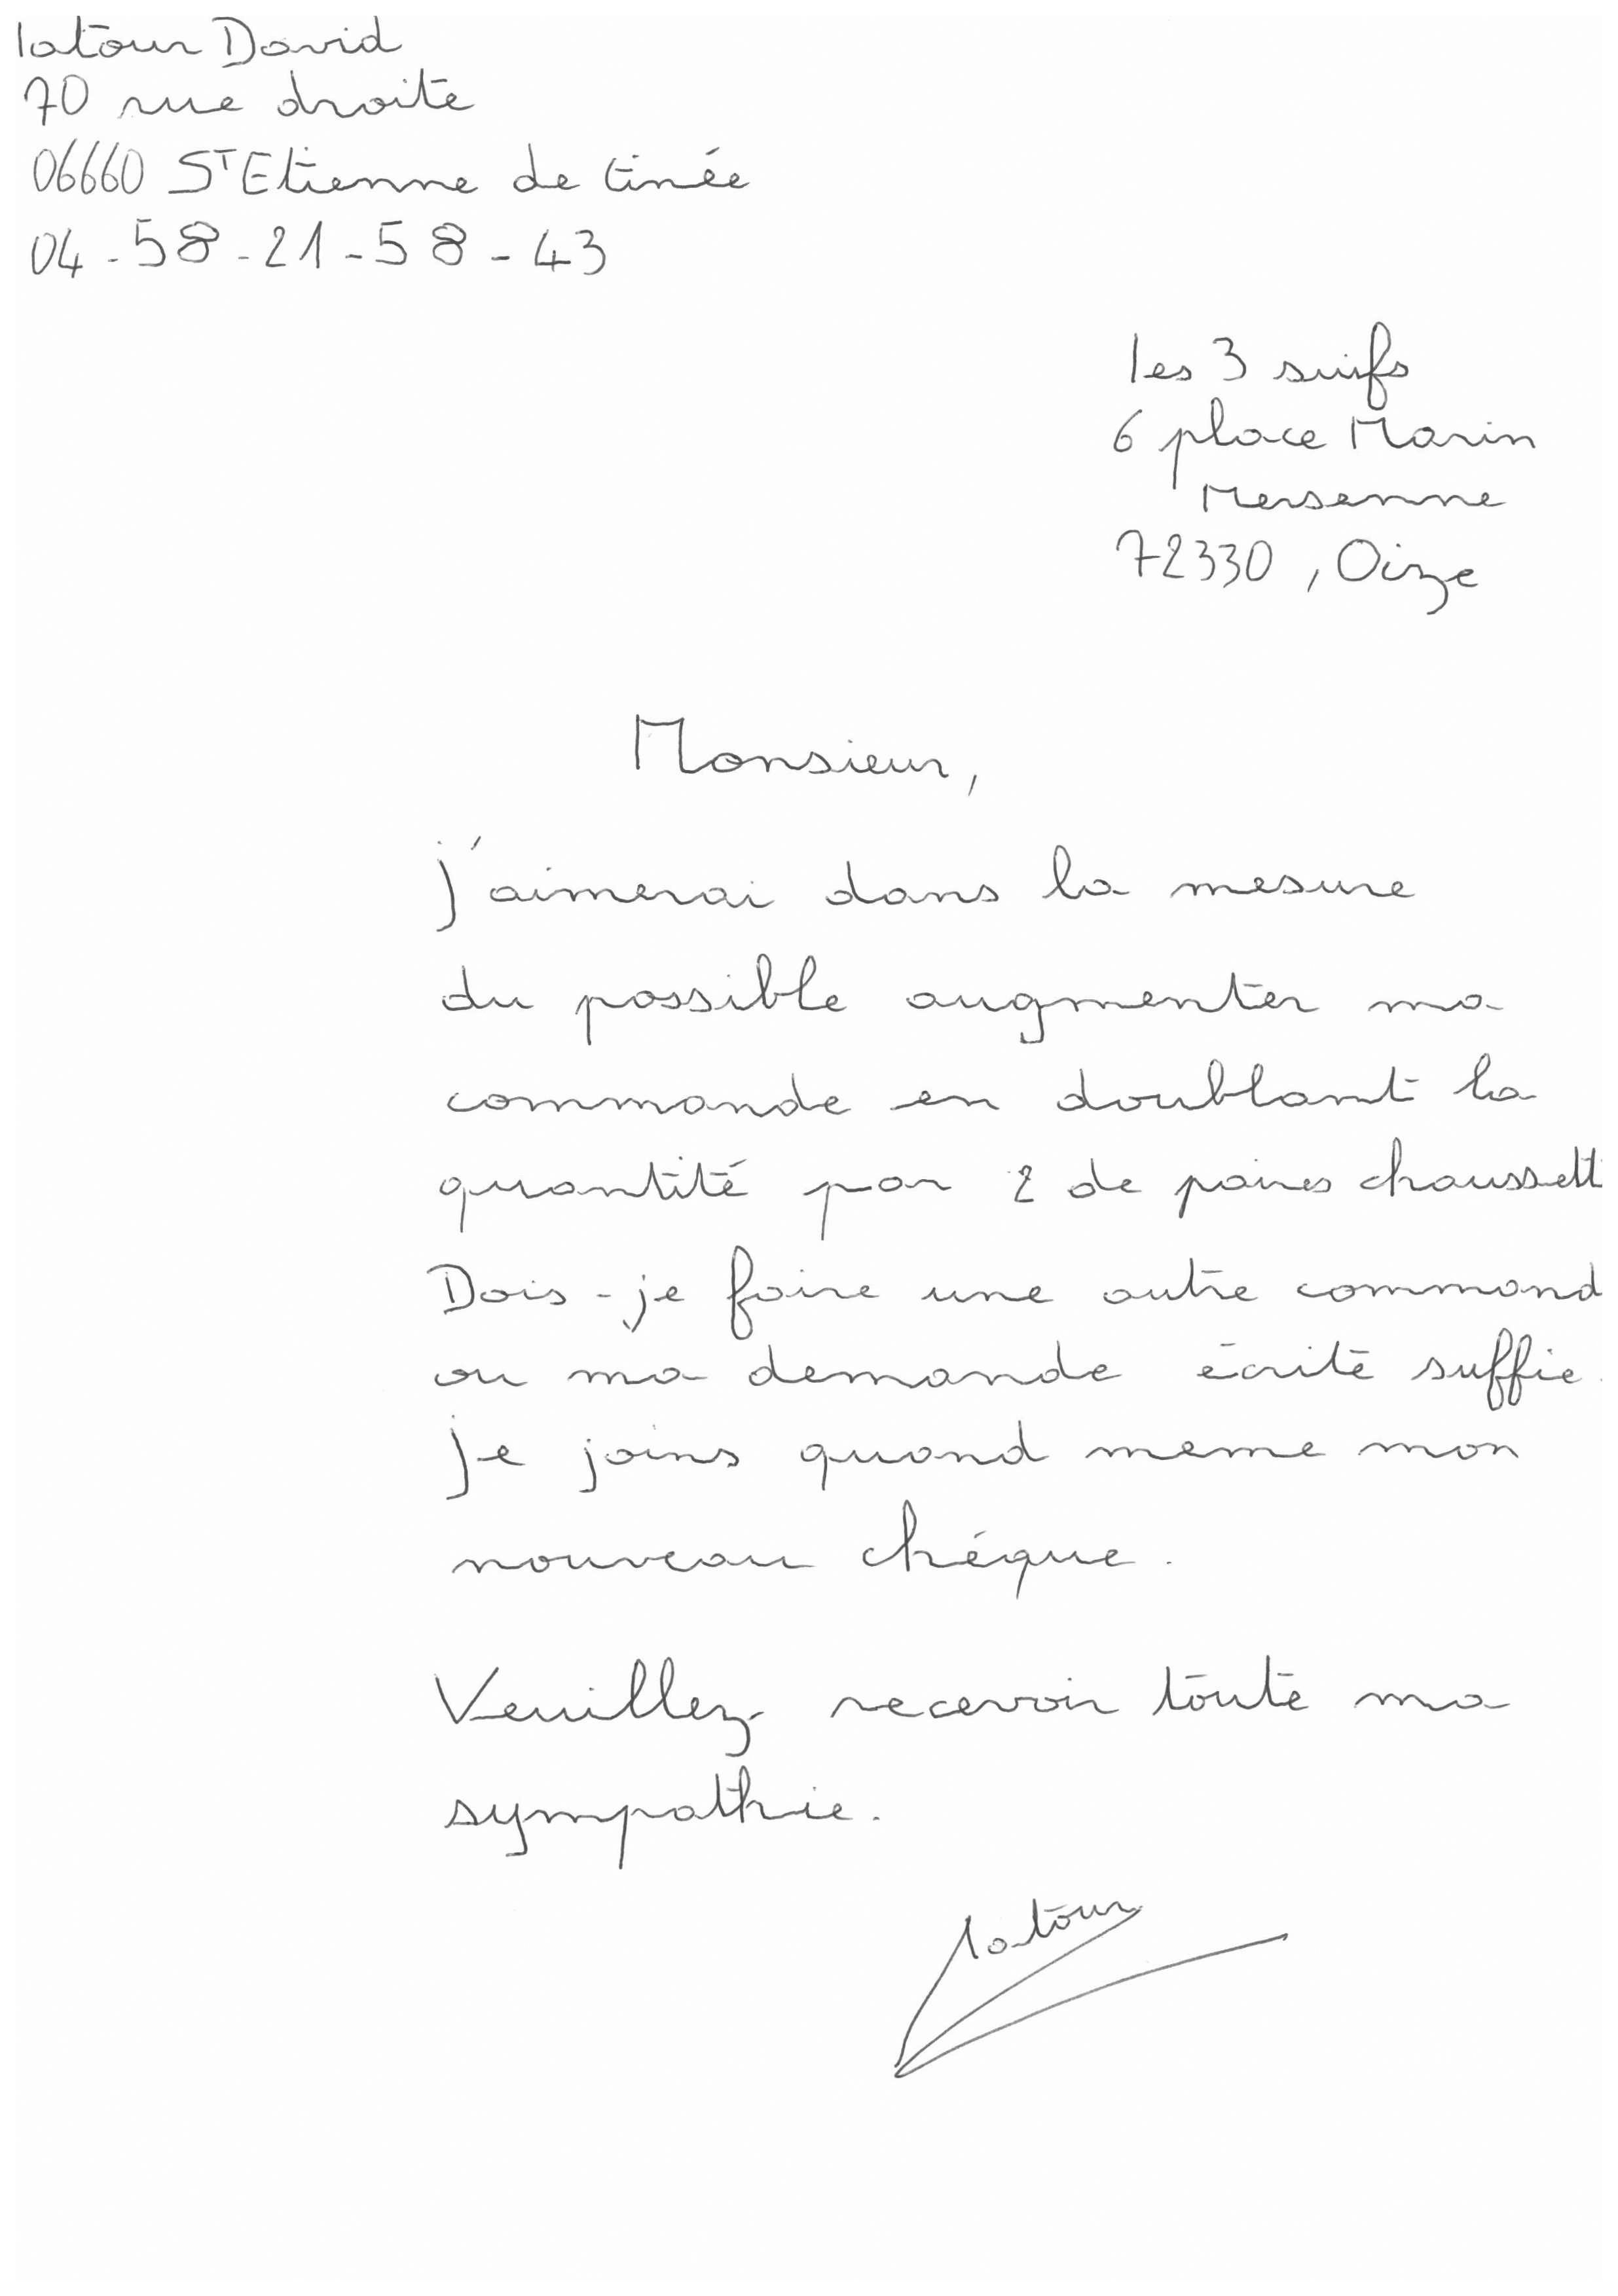 latour David
70 rue droite
06660 ST Etienne de tinée
04-58-21-58-43
les 3 suifs
6 place Marin
Mersenne
72330, Oize
Monsieur,
j'aimerai dans la mesure
du possible augmenter ma
commande en doublant la
quantité par 2 de paires chaussett
Dois-je faire une autre command
ou ma demande écrite suffie.
je joins quand meme mon
nouveau chéque.
Veuillez recevoir toute ma
sympathie.
latour